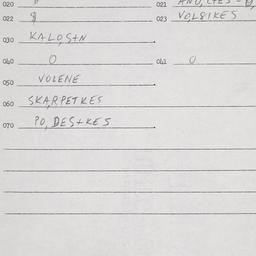 020 021
022 8 023 VOL8IKES
030 KALO,S+N
040 0 041 0
050 VOLENE
060 SKA,RPETKES
070 PO,DES+KES